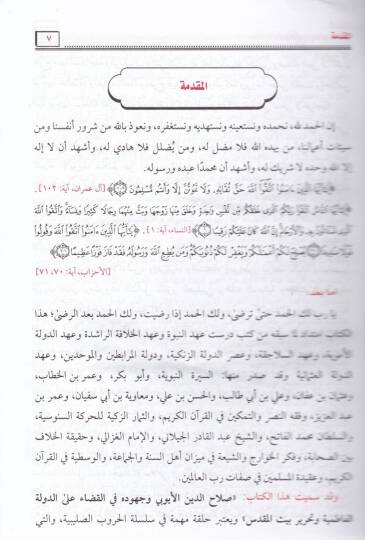 المقدمة
٧
المقدمة
إن الحمد لله، نحمده ونستعينه ونستهديه ونستغفره، ونعوذ بالله من شرور أنفسنا ومن
سيئات أعمالنا، من يهده الله فلا مضل له، ومن يُضلل فلا هادي له، وأشهد أن لا إله
إلا الله وحده لا شريك له، وأشهد أن محمدًا عبده ورسوله.
﴿يَٰٓأَيُّهَا ٱلَّذِينَ ءَامَنُوا۟ ٱتَّقُوا۟ ٱللَّهَ حَقَّ تُقَاتِهِۦ وَلَا تَمُوتُنَّ إِلَّا وَأَنتُم مُّسْلِمُونَ ١٠٢﴾ [آل عمران، آية: ١٠٢].
﴿يَٰٓأَيُّهَا ٱلنَّاسُ ٱتَّقُوا۟ رَبَّكُمُ ٱلَّذِى خَلَقَكُم مِّن نَّفْسٍ وَٰحِدَةٍ وَخَلَقَ مِنْهَا زَوْجَهَا وَبَثَّ مِنْهُمَا رِجَالًا كَثِيرًا وَنِسَآءً وَٱتَّقُوا۟ ٱللَّهَ
ٱلَّذِى تَسَآءَلُونَ بِهِۦ وَٱلْأَرْحَامَ إِنَّ ٱللَّهَ كَانَ عَلَيْكُمْ رَقِيبًا ١﴾ [النساء، آية: ١]. ﴿يَٰٓأَيُّهَا ٱلَّذِينَ ءَامَنُوا۟ ٱتَّقُوا۟ ٱللَّهَ وَقُولُوا۟
قَوْلًا سَدِيدًا ٧٠ يُصْلِحْ لَكُمْ أَعْمَٰلَكُمْ وَيَغْفِرْ لَكُمْ ذُنُوبَكُمْ وَمَن يُطِعِ ٱللَّهَ وَرَسُولَهُۥ فَقَدْ فَازَ فَوْزًا عَظِيمًا ٧١﴾
[الأحزاب، آية: ٧٠، ٧١]
أما بعد:
يا رب لك الحمد حتى ترضى، ولك الحمد إذا رضيت، ولك الحمد بعد الرضى؛ هذا
الكتاب امتداد لما سبقه من كتب درست عهد النبوة وعهد الخلافة الراشدة وعهد الدولة
الأموية، وعهد السلاجقة، وعصر الدولة الزنكية، ودولة المرابطين والموحدين، وعهد
الدولة العثمانية وقد صدر منها: السيرة النبوية، وأبو بكر، وعمر بن الخطاب،
وعثمان بن عفان، وعلي بن أبي طالب، والحسن بن علي، ومعاوية بن أبي سفيان، وعمر بن
عبد العزيز، وفقه النصر والتمكين في القرآن الكريم، والثمار الزكية للحركة السنوسية،
والسلطان محمد الفاتح، والشيخ عبد القادر الجيلاني، والإمام الغزالي، وحقيقة الخلاف
بين الصحابة، وفكر الخوارج والشيعة في ميزان أهل السنة والجماعة، والوسطية في القرآن
الكريم، وعقيدة المسلمين في صفات رب العالمين.
وقد سميت هذا الكتاب: «صلاح الدين الأيوبي وجهوده في القضاء على الدولة
الفاطمية وتحرير بيت المقدس» ويعتبر حلقة مهمة في سلسلة الحروب الصليبية، والتي